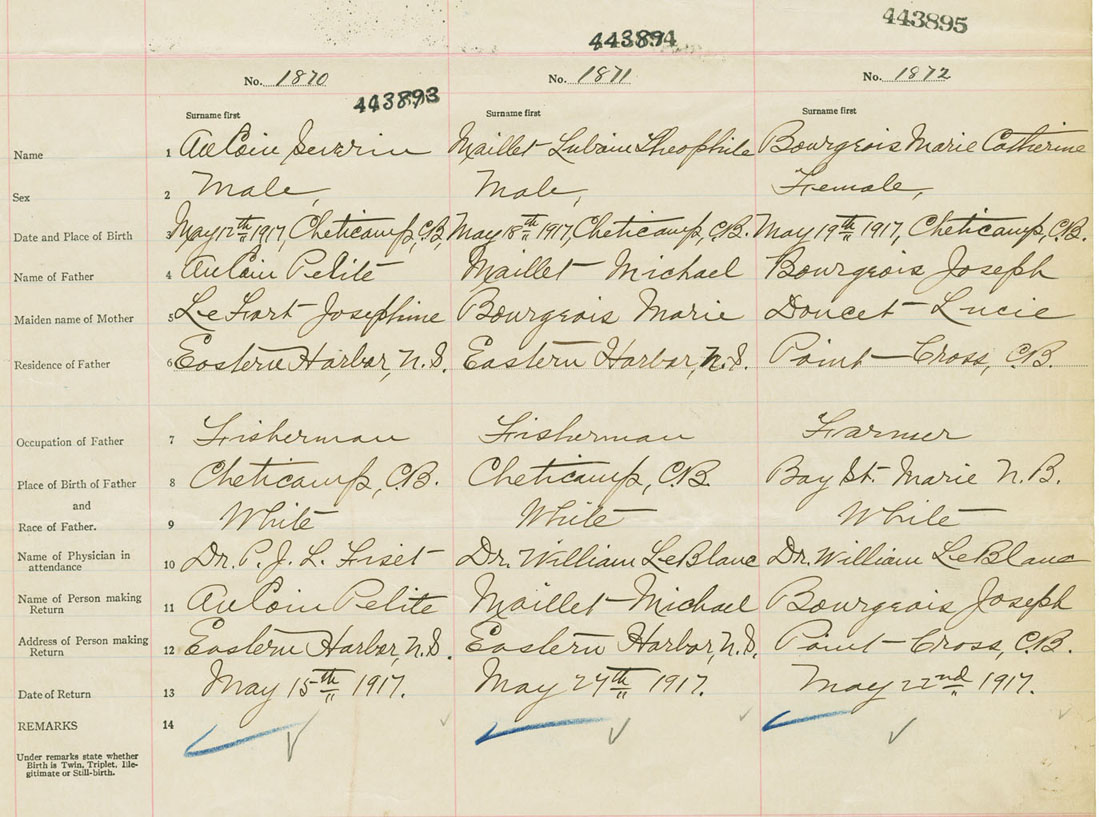 443895
443894
No. 1870 No. 1871 No. 1872
443893
Surname first Surname first Surname first
Name 1 AuCoin Severin Maillet Lubain Theophile Bourgeois Marie Catherine
Sex 2 Male, Male, Female,
Date and Place of Birth 3 May 12th 1917, Cheticamp, C.B. May 18th 1917, Cheticamp, C.B. May 19th 1917, Cheticamp, C.B.
Name of Father 4 AuCoin Pelite Maillet Michael Bourgeois Joseph
Maiden name of Mother 5 LeFort Josephine Bourgeois Marie Doucet Lucie
Residence of Father 6 Eastern Harbor, N.S. Eastern Harbor, N.S. Point Cross, C.B.
Occupation of Father 7 Fisherman Fisherman Farmer
Place of Birth of Father 8 Cheticamp, C.B. Cheticamp, C.B. Bay St. Marie N.B.
and
Race of Father. 9 White White White
Name of Physician in attendance 10 Dr. P. J. L. Fiset Dr. William LeBlanc Dr. William LeBlanc
Name of Person making Return 11 AuCoin Pelite Maillet Michael Bourgeois Joseph
Address of Person making Return 12 Eastern Harbor, N.S. Eastern Harbor, N.S. Point Cross, C.B.
Date of Return 13 May 15th 1917. May 24th 1917. May 22nd 1917.
REMARKS 14
Under remarks state whether
Birth is Twin, Triplet, Ille-
gitimate or Still-birth.